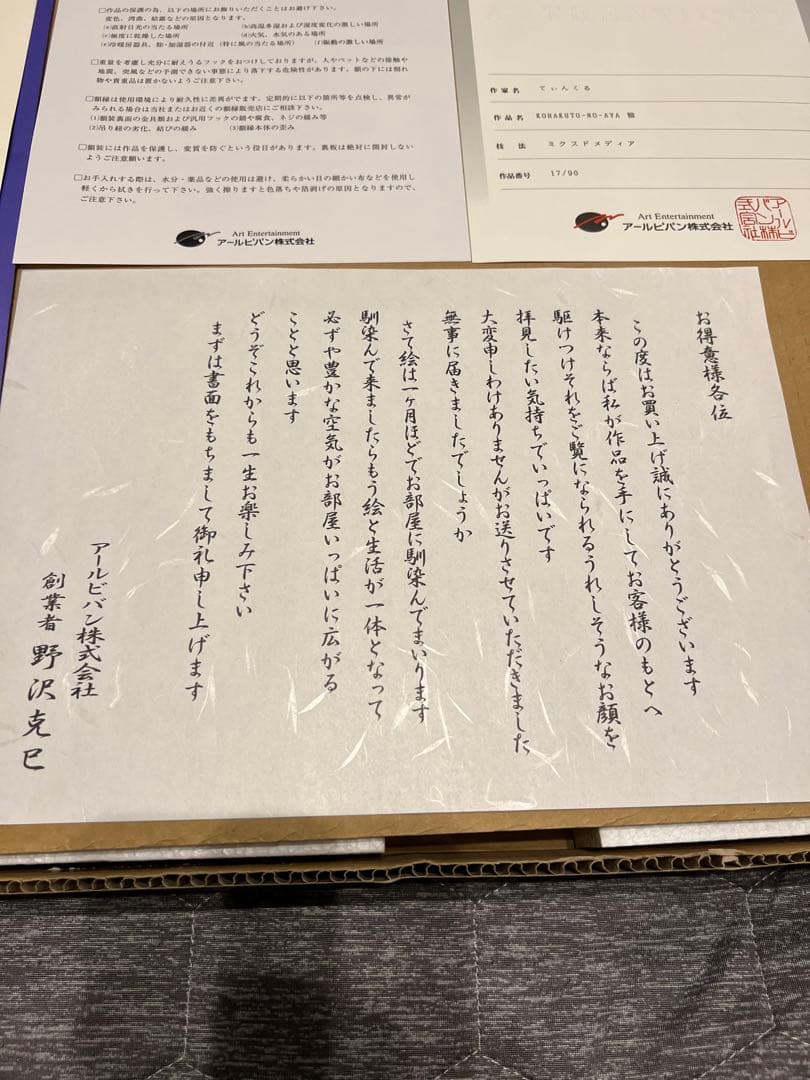 □作品の保護の為、以下の場所にお飾りいただくことはお避け下さい。
変色、湾曲、結露などの原因となります。
(a)直射日光の当たる場所　(b)高温多湿および湿度変化の激しい場所
(c)極度に乾燥した場所　(d)火気、水気のある場所
(e)冷暖房器具、除・加湿器の付近（特に風の当たる場所）　(f)振動の激しい場所
□重量を考慮し充分に耐えうるフックをおつけしておりますが、人やペットなどの接触や
地震、突風などの予測できない事態により落下する危険性があります。額の下には割れ
物や貴重品は置かないようご注意下さい。
□額縁は使用環境により耐久性に差異がでます。定期的に以下の箇所等を点検し、異常が
みられる場合は当社またはお近くの額縁販売店にご相談下さい。
(1)額装裏面の金具類および汎用フックの錆や腐食、ネジの緩み等
(2)吊り紐の劣化、結びの緩み　(3)額縁本体の歪み
□額装には作品を保護し、変質を防ぐという役目があります。裏板は絶対に開封しない
ようご注意願います。
□お手入れする際は、水分・薬品などの使用は避け、柔らかい目の細かい布などを使用し
軽くから拭きを行って下さい。強く擦りますと色落ちや箔剥げの原因となりますので、
ご注意下さい。
Art Entertainment
アールビバン株式会社
作家名　てぃんくる
作品名　KOHAKUTO-NO-AYA 雅
技法　ミクスドメディア
作品番号　17/90
Art Entertainment
アールビバン株式会社
お得意様各位
この度はお買い上げ誠にありがとうございます
本来ならば私が作品を手にしてお客様のもとへ
駆けつけそれをご覧になられるうれしそうなお顔を
拝見したい気持ちでいっぱいです
大変申しわけありませんがお送りさせていただきました
無事に届きましたでしょうか
さて絵は一ヶ月ほどでお部屋に馴染んでまいります
馴染んで来ましたらもう絵と生活が一体となって
必ずや豊かな空気がお部屋いっぱいに広がる
ことと思います
どうぞこれからも一生お楽しみ下さい
まずは書面をもちまして御礼申し上げます
アールビバン株式会社
創業者 野沢克巳